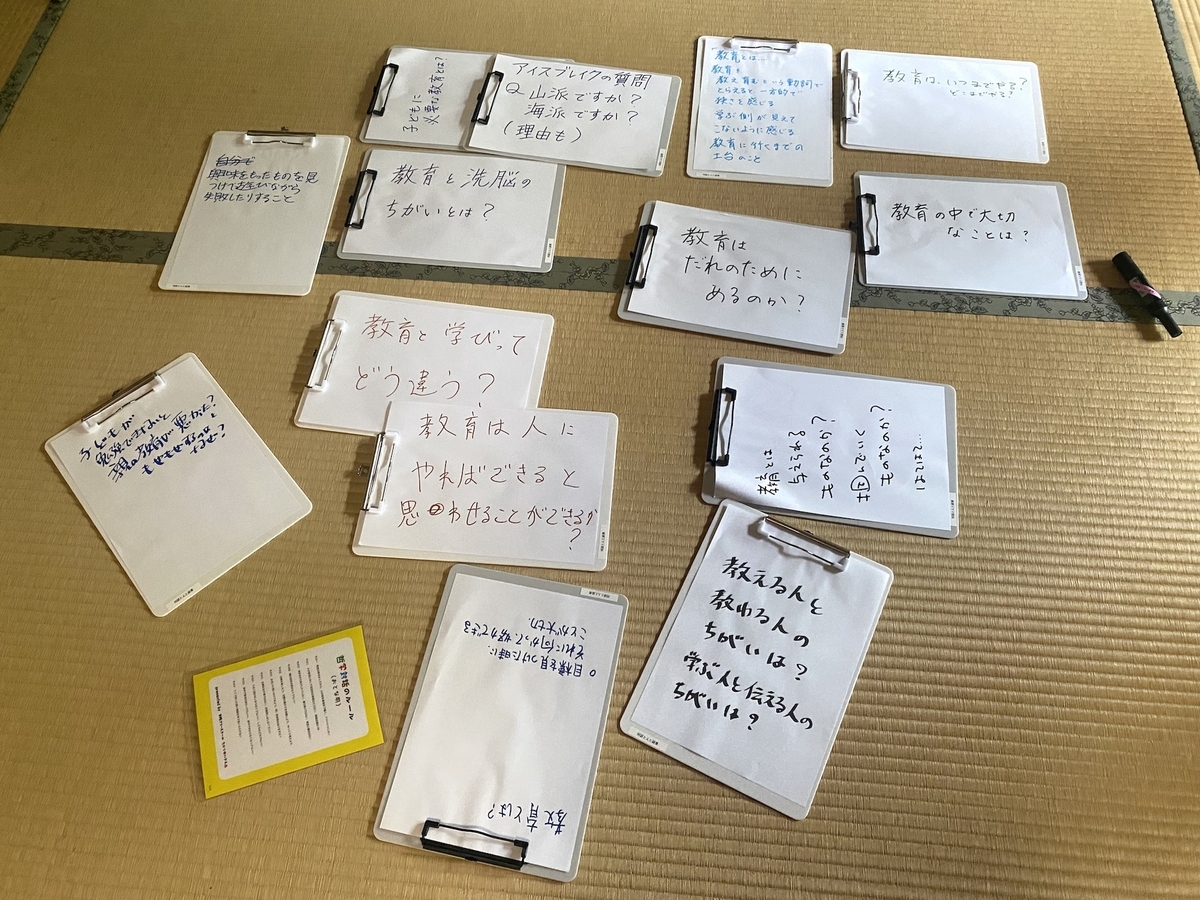 子どもに
必要な教育とは?
アイスブレイクの質問
Q 山派ですか?
海派ですか?
(理由も)
教育とは…
教育を
教え育むという動詞で
とらえると一方的で
狭さを感じる
学ぶ側が見えて
こないように感じる
教育に行くまでの
土台のこと
教育は、いつまでやる?
どこまでやる?
自分で
興味をもったものを見
つけて遊びながら
失敗したりすること
教育と洗脳の
ちがいとは?
教育は
だれのために
あるのか?
教育の中で大切
なことは?
教育と学びって
どう違う?
子どもが
親の教育が悪かった?
教育は人に
やればできると
思わせることができるか
?
教育とは
与えられる
ものなのか?
ものなのか?
はてはて…
教えると人と
教わる人の
ちがいは?
学ぶ人と伝える人の
ちがいは?
教育とは?
○ 目標を見つけた時に、
それに向かって、努力できる
ことが大切。
哲学対話のルール
(おとな用)